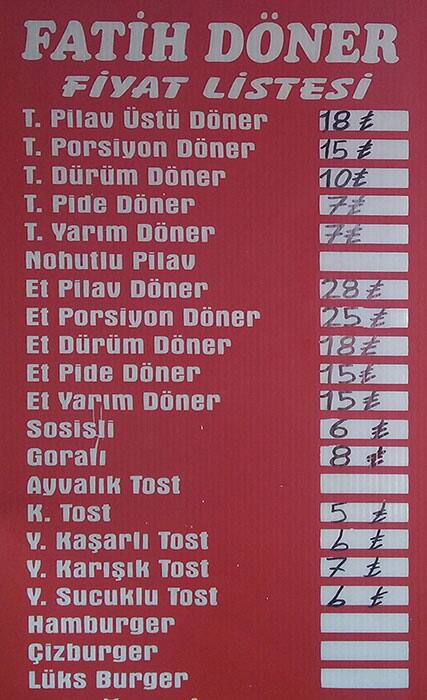 FATİH DÖNER
FİYAT LİSTESİ
T. Pilav Üstü Döner 18 ₺
T. Porsiyon Döner 15 ₺
T. Dürüm Döner 10₺
T. Pide Döner 7₺
T. Yarım Döner 7₺
Nohutlu Pilav
Et Pilav Döner 28 ₺
Et Porsiyon Döner 25 ₺
Et Dürüm Döner 18₺
Et Pide Döner 15₺
Et Yarım Döner 15₺
Sosisli 6 ₺
Goralı 8 ₺
Ayvalık Tost
K. Tost 5 ₺
Y. Kaşarlı Tost 6 ₺
Y. Karışık Tost 7 ₺
Y. Sucuklu Tost 6 ₺
Hamburger
Çizburger
Lüks Burger